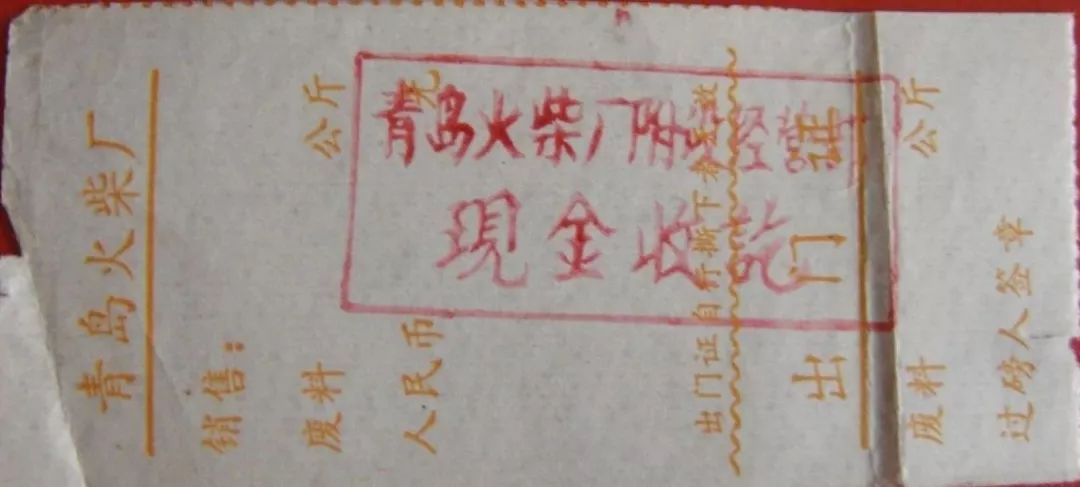 青岛火柴厂
销售：
废料 公斤
人民币 元
青岛火柴厂
现金收讫
出门证自行撕下者无效
出门证
废料 公斤
过磅人签章